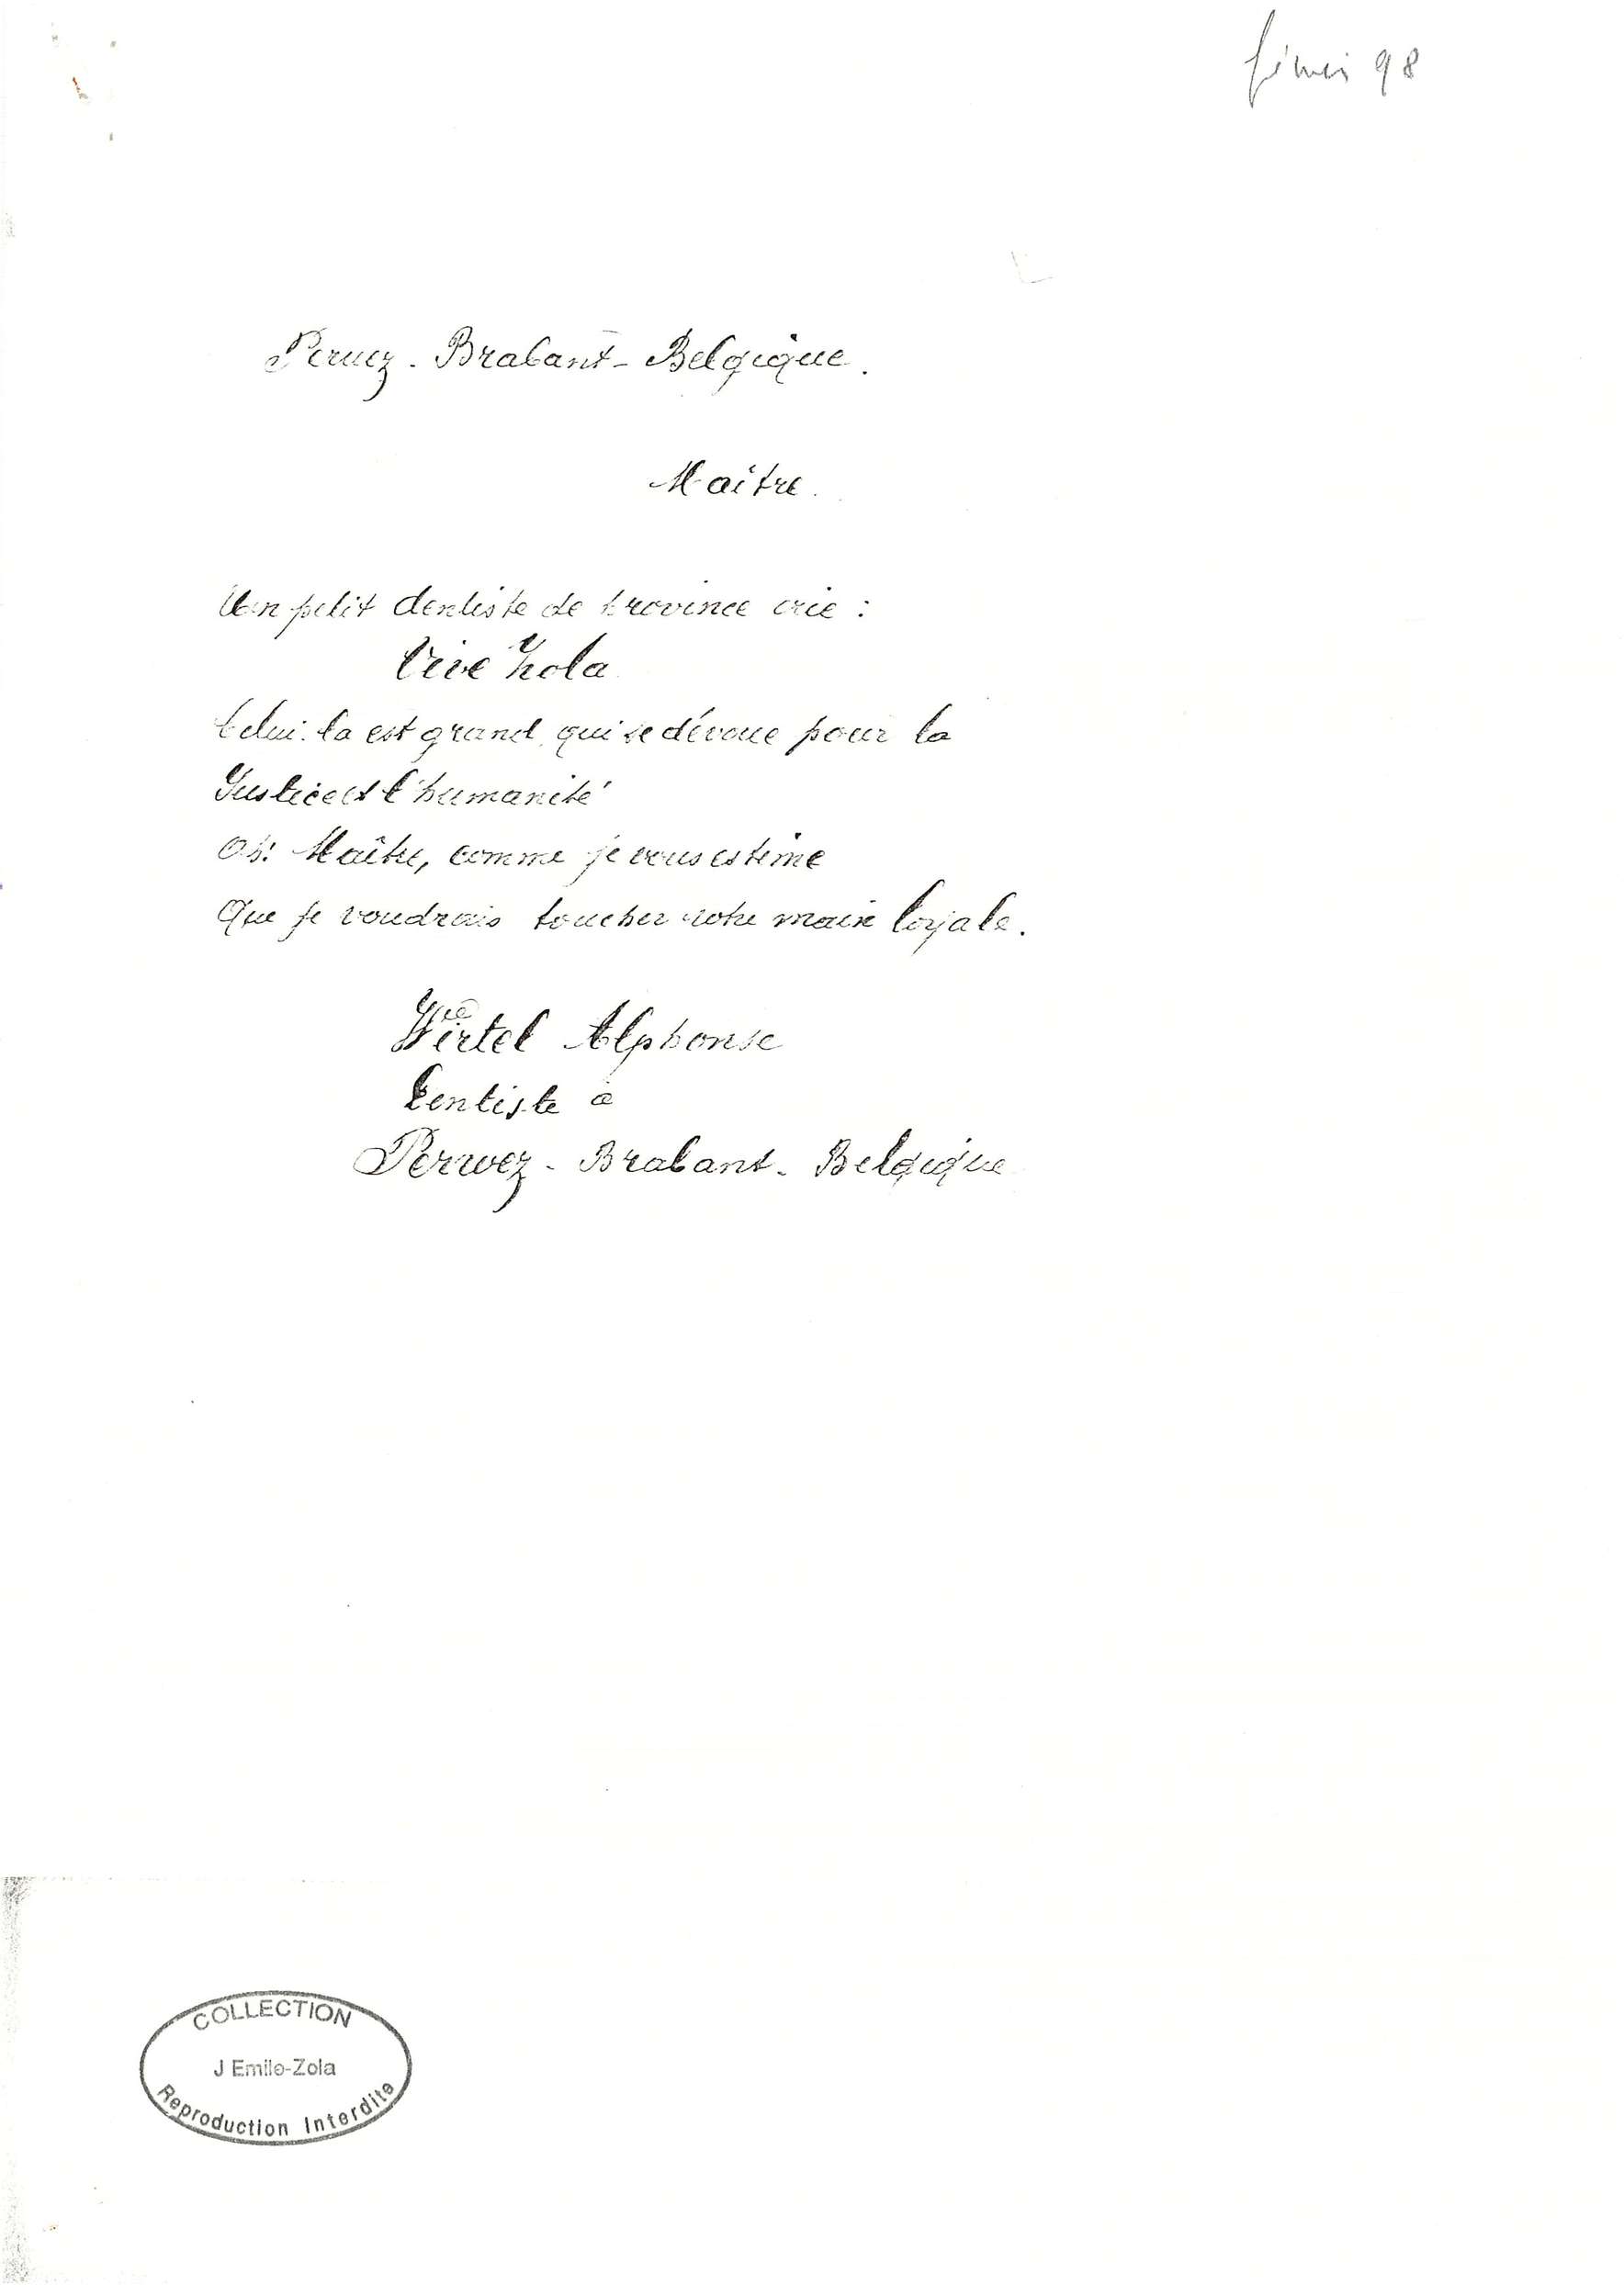 février 98
Perwez - Brabant - Belgique.
Maître.
Un petit dentiste de province crie :
Vive Zola
Celui-la est grand, qui se dévoue pour la
Justice et l'humanité
Oh! Maître, comme je vous estime
Que je voudrais toucher votre main loyale.
Wirtel Alphonse
Dentiste à
Perwez - Brabant - Belgique
COLLECTION
J Emile-Zola
Reproduction Interdite